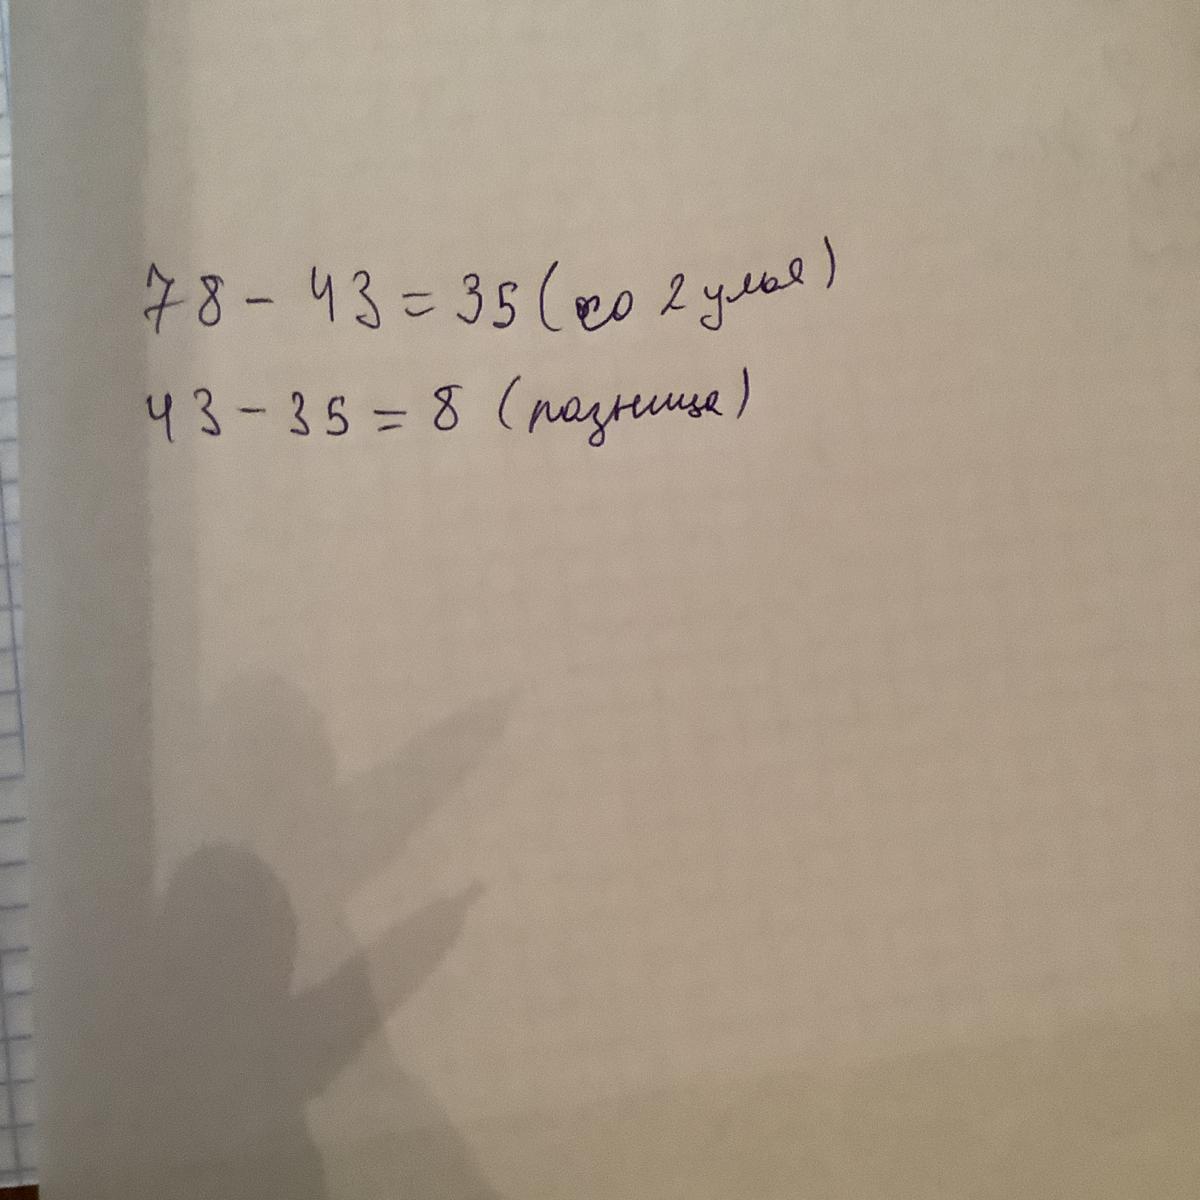 78 - 43 = 35 (со 2 улья)
43 - 35 = 8 (разница)